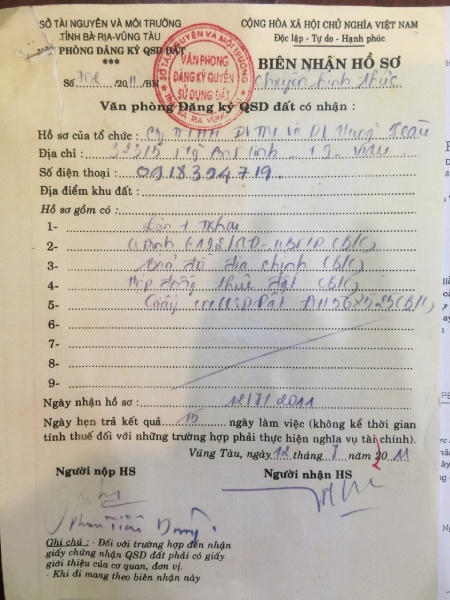 SỞ TÀI NGUYÊN VÀ MÔI TRƯỜNG
TỈNH BÀ RỊA-VŨNG TÀU
PHÒNG ĐĂNG KÝ QSD ĐẤT
***
Số /2011/BN
CỘNG HÒA XÃ HỘI CHỦ NGHĨA VIỆT NAM
Độc lập - Tự do - Hạnh phúc
BIÊN NHẬN HỒ SƠ
chuyển hình thức
SỞ TÀI NGUYÊN VÀ MÔI TRƯỜNG
VĂN PHÒNG
ĐĂNG KÝ QUYỀN
SỬ DỤNG ĐẤT
Văn phòng Đăng ký QSD đất có nhận :
Hồ sơ của tổ chức : Cty TNHH
Địa chỉ :
Số điện thoại : 0918324719
Địa điểm khu đất :
Hồ sơ gồm có :
1- Đơn + Tkhai
2-
3- Bản đồ địa chính (B/C)
4- Hợp đồng thuê đất (B/C)
5- Giấy
6-
7-
8-
9-
Ngày nhận hồ sơ : 12/7/2011
Ngày hẹn trả kết quả 15 ngày làm việc (không kể thời gian
tính thuế đối với những trường hợp phải thực hiện nghĩa vụ tài chính).
Vũng Tàu, ngày 12 tháng 7 năm 2011
Người nộp HS
Người nhận HS
Ghi chú : - Đối với trường hợp đến nhận
giấy chứng nhận QSD đất phải có giấy
giới thiệu của cơ quan, đơn vị.
- Khi đi mang theo biên nhận này